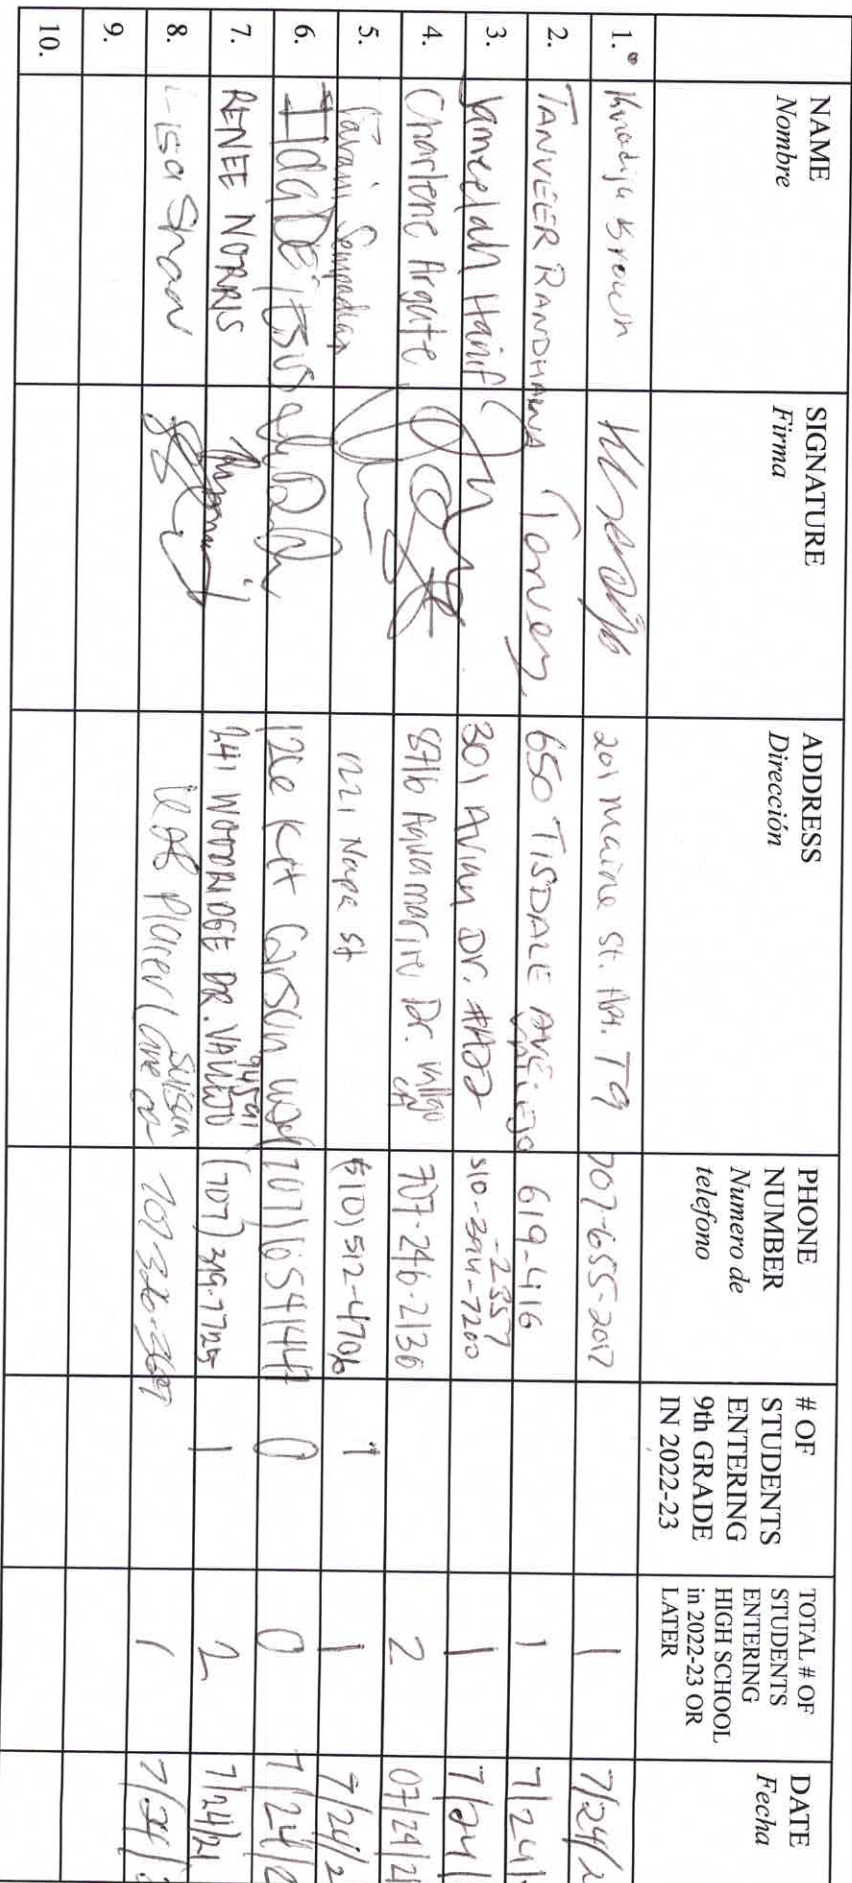 NAME
Nombre
SIGNATURE
Firma
ADDRESS
Dirección
PHONE
NUMBER
Numero de
telefono
# OF
STUDENTS
ENTERING
9th GRADE
IN 2022-23
TOTAL # OF
STUDENTS
ENTERING
HIGH SCHOOL
in 2022-23 OR
LATER
DATE
Fecha
1. Khadija Brown 201 Maine St. Apt. T9 707-655-2017 1 7/24/2
2. TANVEER RANDHAWA 650 TISDALE AVE. VALLEJO 619-416-2357 1 7/24/
3. Jameelah Hanif 301 Avian Dr. 510-394-7200 1 7/24/
4. Charlene Argate 876 Aquamarine Dr. Vallejo CA 707-246-2136 2 07/24/21
5. 1221 Napa St (510) 512-4706 1 1 7/24/2
6. Kit Carson way 0 0 7/24/2
7. RENEE NORRIS 241 WOODRIDGE DR. VALLEJO 94591 (707) 319-7725 1 2 7/24/21
8. Lisa Shaw Placer Lane Suisun 1 7/24/2
9.
10.